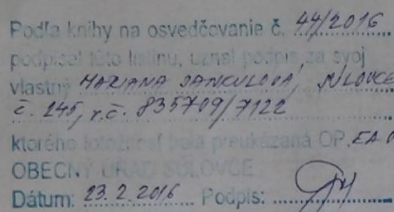 Podľa knihy na osvedčovanie č. 44/2016
podpísal túto listinu, uznal podpis za svoj
vlastný MARIANA JANKULOVÁ, NLOVCE
č. 245, r.č. 835709/7122
ktorého totožnosť bola preukázaná OP. EA
OBECNÝ ÚRAD SÚLOVCE
Dátum: 23.2.2016 Podpis: